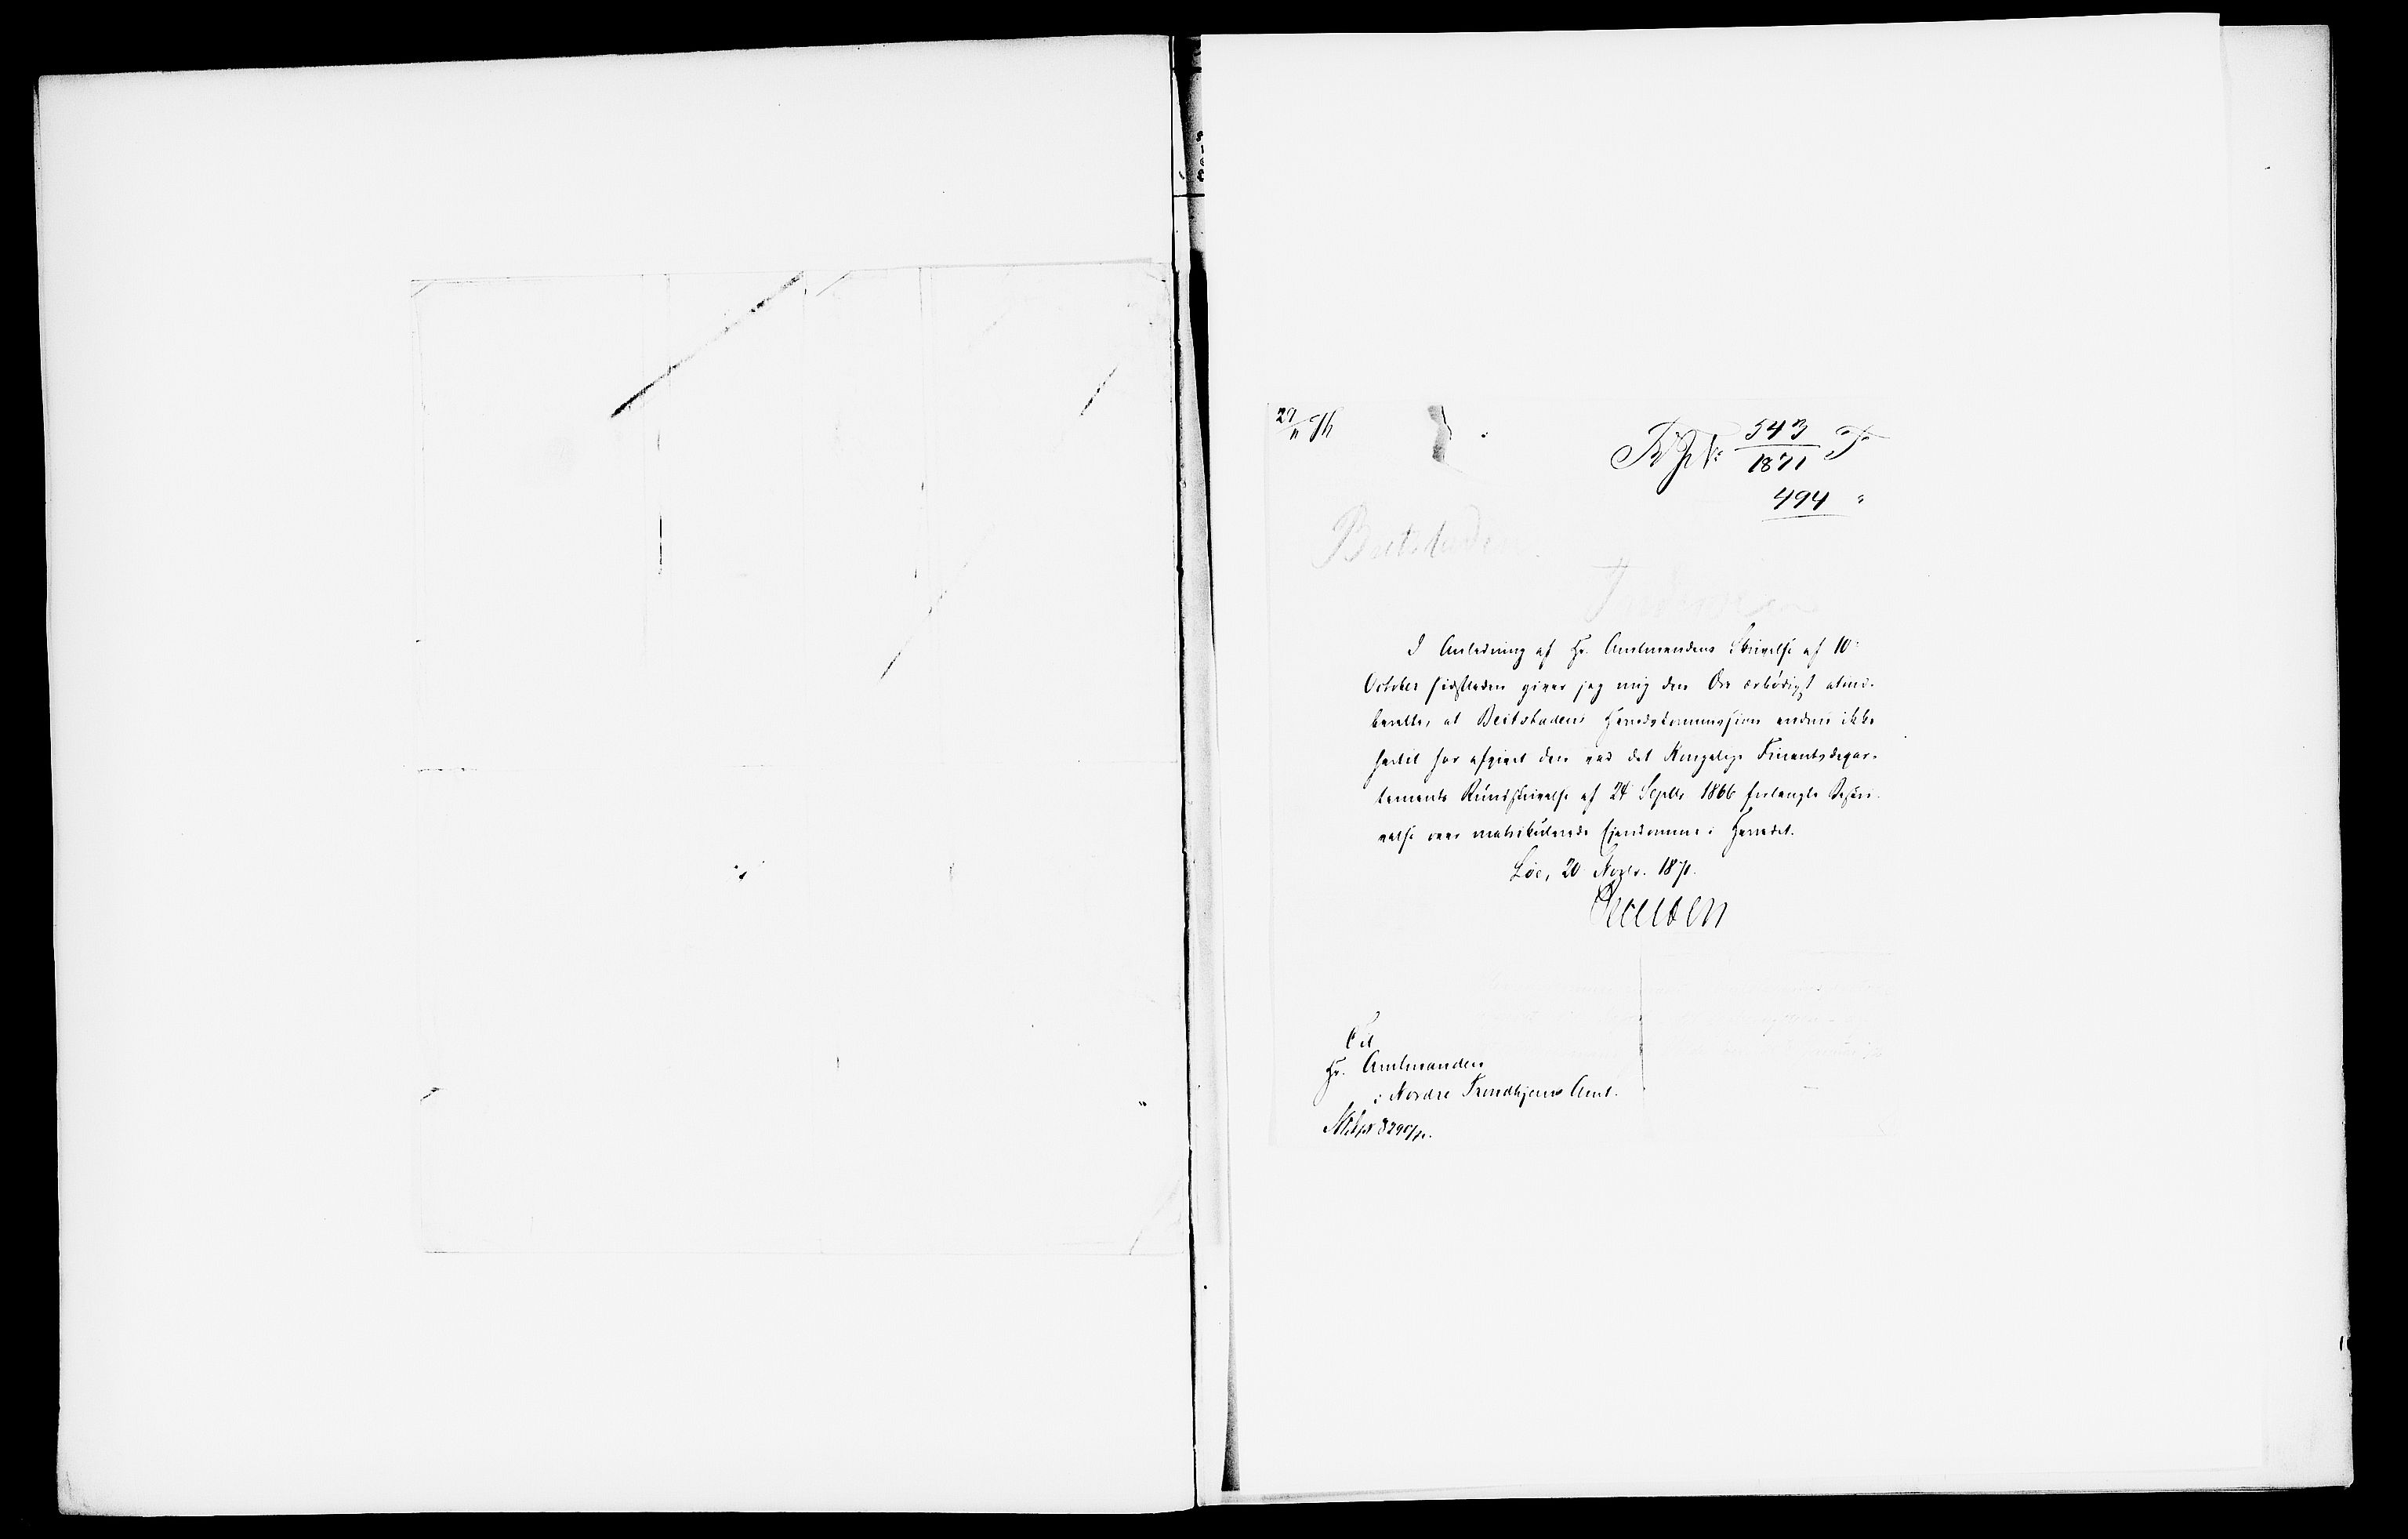 27/11 71
543
1871
494 "
Beitstaden
Inderøen
I Anledning af Hr. Amtmandens Skrivelse af 10de
October sidstleden giver jeg mig den Ære ærbødigst at ind-
berette, at Beitstadens Herredskommission endnu ikke
hertil har afgivet den ved det Kongelige Finantsdepar-
tements Rundskrivelse af 24 Septbr 1866 forlangte Beskri-
velse over matrikulerede Ejendomme i Herredet.
20 Novbr. 1871.
Til
Hr. Amtmanden
i Nordre Trondhjems Amt.